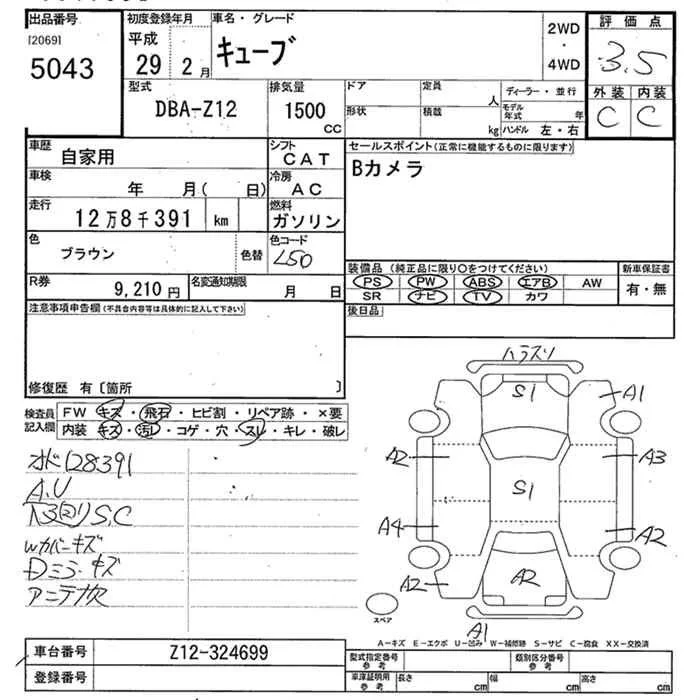 出品番号
[2069]
5043
初度登録年月
平成
29 2月
車名・グレード
キューブ
2WD
・
4WD
評価点
3.5
外装 内装
C C
型式
DBA-Z12
排気量
1500
CC
ドア
形状
定員
人
積載
kg
ディーラー・並行
モデル年式 年
ハンドル 左・右
車歴
自家用
シフト
CAT
セールスポイント(正常に機能するものに限ります)
Bカメラ
車検
年 月( 日)
冷房
AC
走行
12万8千391 km
燃料
ガソリン
色
ブラウン
色替
色コード
L50
装備品(純正品に限り○をつけてください)
PS PW ABS エアB AW
SR ナビ TV カワ
新車保証書
有・無
R券
9,210円
名変通知期限
月 日
後日品
注意事項申告欄(不具合内容等は具体的に記入して下さい)
修復歴 有〔箇所 〕
検査員記入欄
FW キズ・飛石・ヒビ割・リペア跡・×要
内装 キズ・汚レ・コゲ・穴・スレ・キレ・破レ
ｵﾄﾞ128391
A.U
S.C
Wカバーキズ
Dミラーキズ
アンテナ欠
ハラスリ
S1
A1
A2
A3
S1
A4
A2
A2
A2
A1
スペア
A－キズ E－エクボ U－凹み W－補修跡 S－サビ C－腐食 XX－交換済
車台番号
Z12-324699
登録番号
型式指定番号
参考
類別区分番号
参考
車庫証明用
参考
長さ
cm
幅
cm
高さ
cm